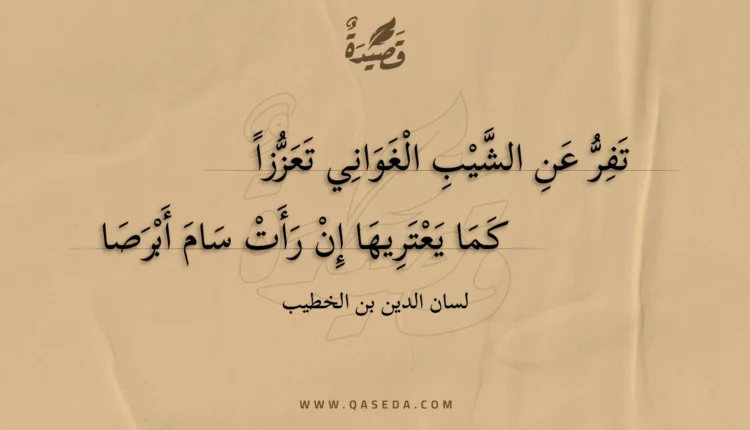 قَصِيدَةٌ
تَفِرُّ عَنِ الشَّيْبِ الْغَوَانِي تَعَزُّزاً
كَمَا يَعْتَرِيهَا إِنْ رَأَتْ سَامَ أَبْرَصَا
لسان الدين بن الخطيب
WWW.QASEDA.COM